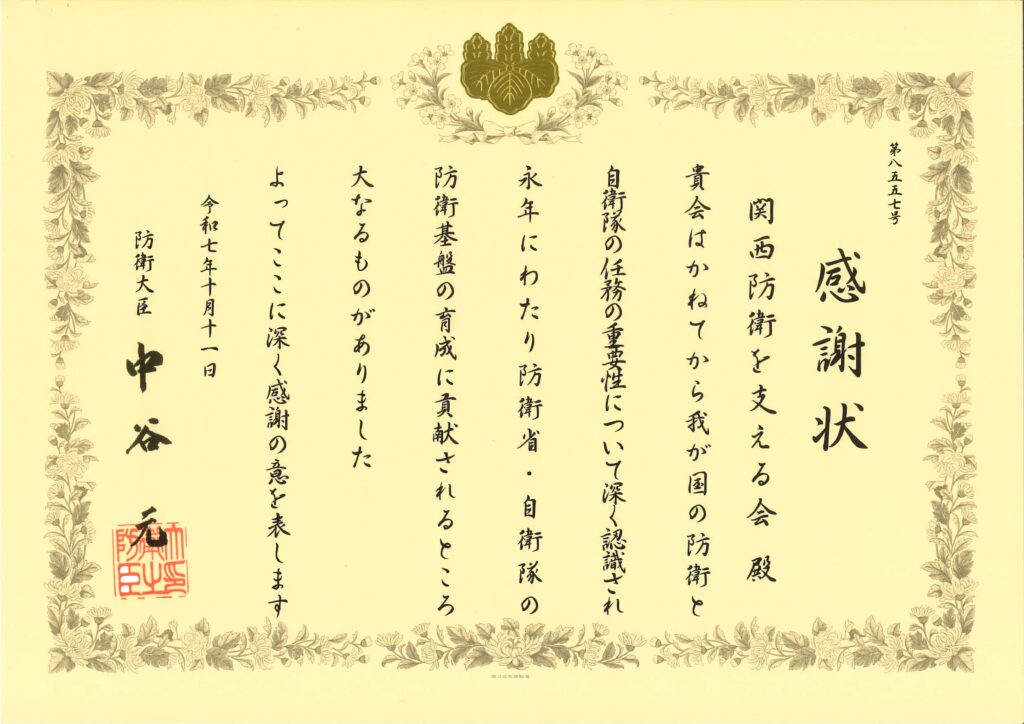 第八五五七号
感謝状
関西防衛を支える会 殿
貴会はかねてから我が国の防衛と
自衛隊の任務の重要性について深く認識され
永年にわたり防衛省・自衛隊の
防衛基盤の育成に貢献されるところ
大なるものがありました
よってここに深く感謝の意を表します
令和七年十月十一日
防衛大臣 中谷 元